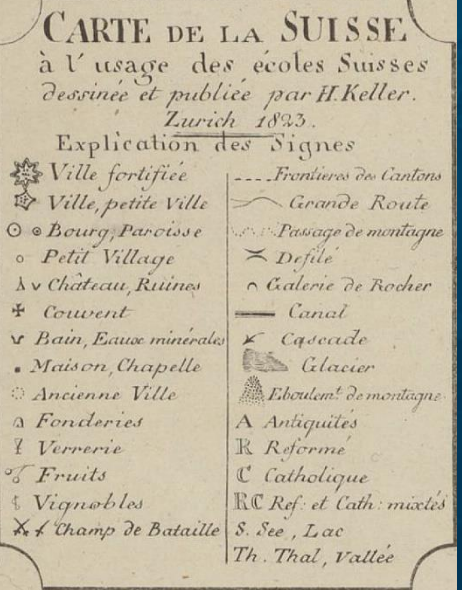 CARTE DE LA SUISSE
à l'usage des écoles Suisses
dessinée et publiée par H. Keller.
Zurich 1823.
Explication des Signes
Ville fortifiée
Ville, petite Ville
Bourg, Paroisse
Petit Village
Château, Ruines
Couvent
Bain, Eaux minérales
Maison, Chapelle
Ancienne Ville
Fonderies
Verrerie
Fruits
Vignobles
Champ de Bataille
Frontieres des Cantons
Grande Route
Passage de montagne
Defilé
Galerie de Rocher
Canal
Cascade
Glacier
Eboulemt. de montagne
A Antiquités
R Reformé
C Catholique
RC Ref: et Cath: mixtés
S. See, Lac
Th. Thal, Vallée